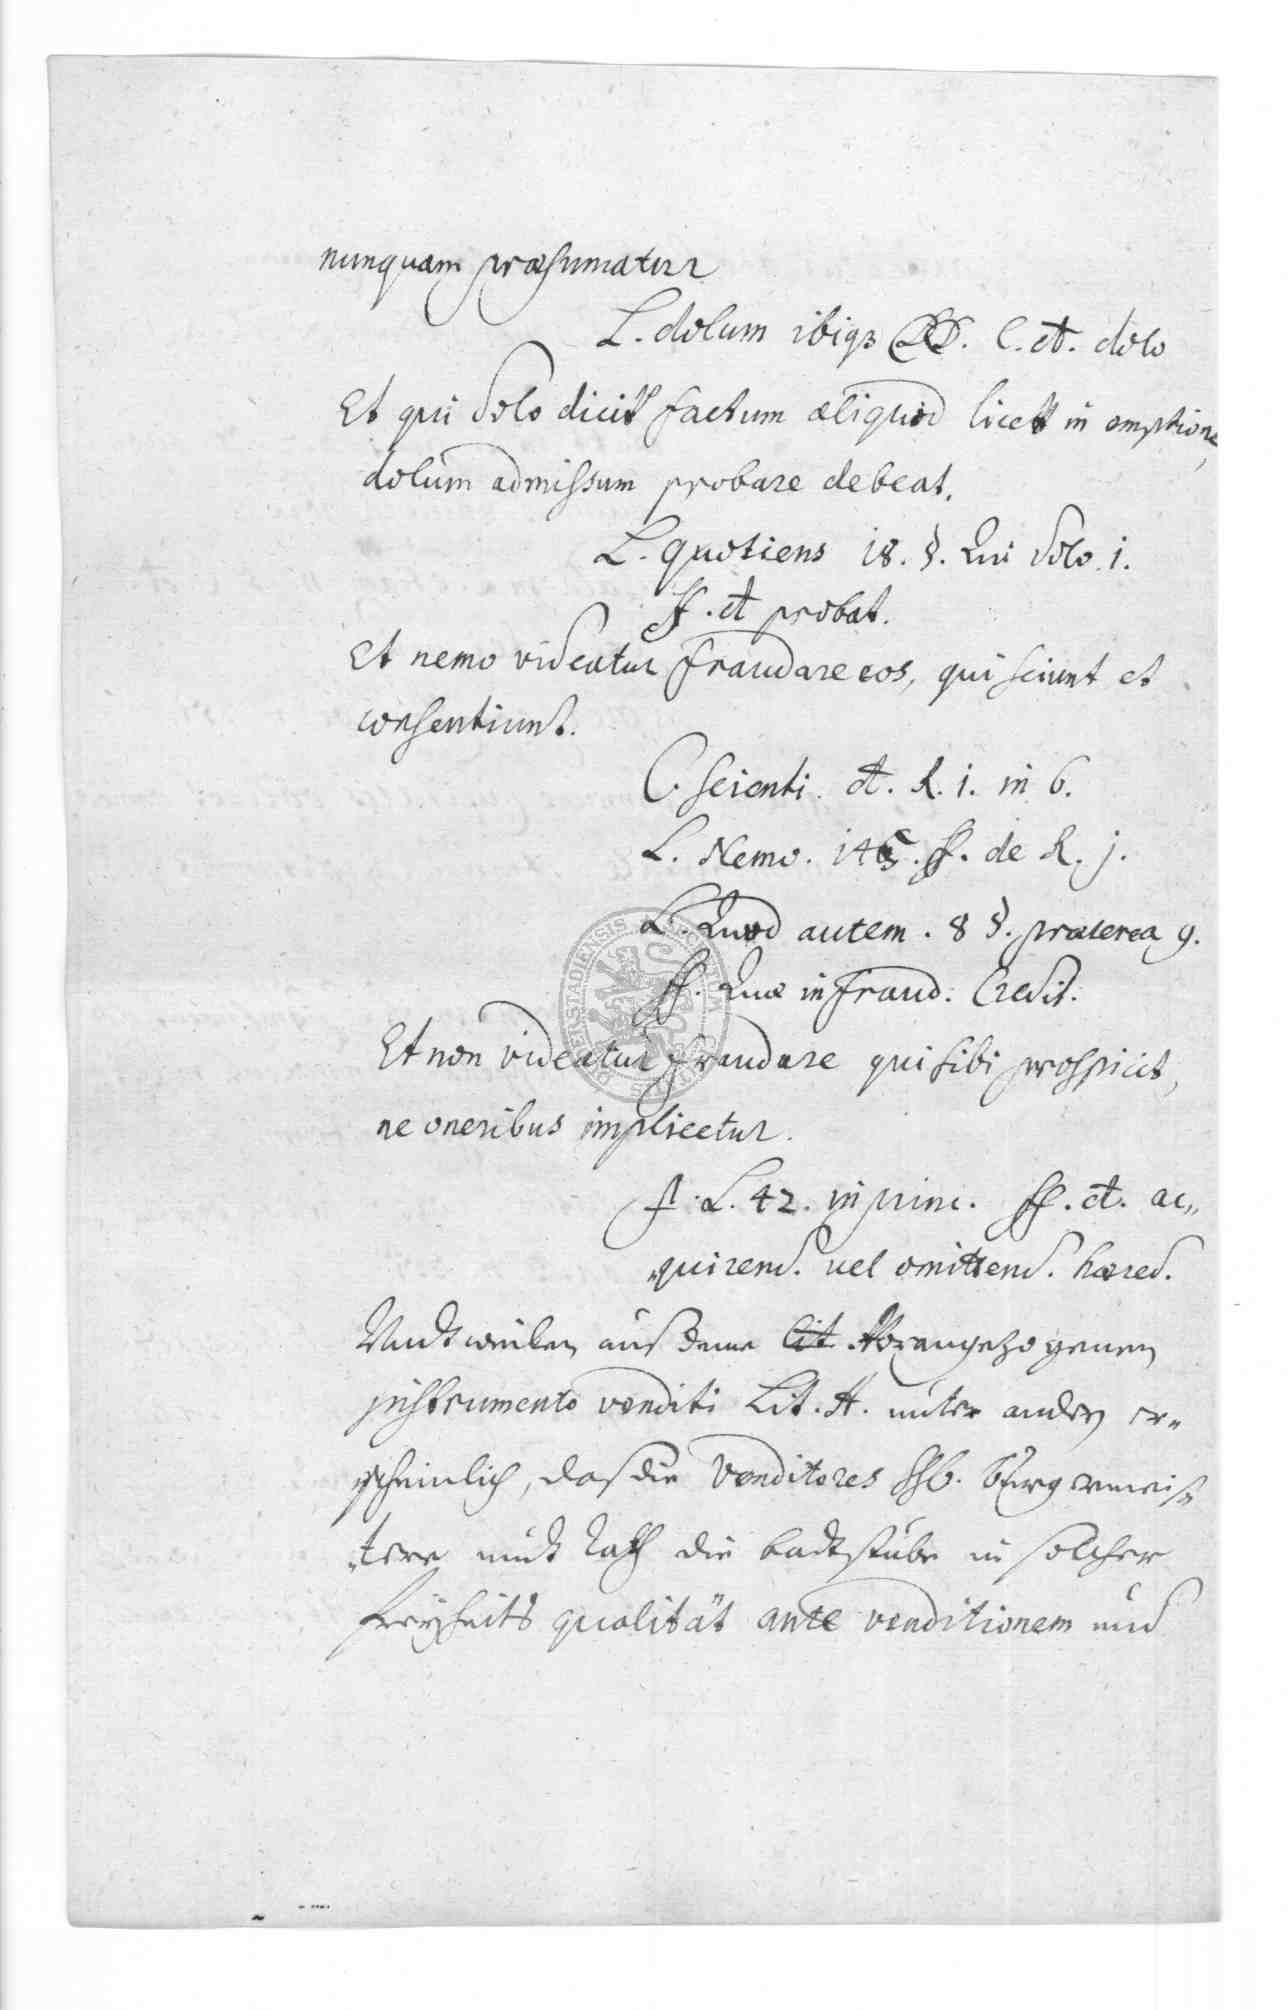 nunquam præsumatur
L. dolum ibiq3 DD. C. et. dolo
Et qui dolo dicit factum aliquod licet in emptione,
dolum admissum probare debeat.
L. quotiens 18. §. Qui dolo 1.
ff. et probat.
Et nemo videatur fraudare eos, qui sciunt et
consentiunt.
C. scienti et. R. i. in 6.
L. Nemo. 145. ff. de R. j.
L. Quod autem. 8 §. præterea 9.
ff. Quæ in fraud. Credit.
Et non videatur fraudare qui sibi prospicit,
ne oneribus implicetur.
L. 42. in princ. ff. et. ac„
„quirend. vel omittend. hæred.
Undt weilen auß deme lit Vorangezogenen
instrumento venditi Lit. A. unter andern er„
scheinlich, daß die Venditores Hh. burgermeis„
„tere undt Rath die badtstube in solcher
freyheits qualität ante venditionem und
HALBERSTADIENSIS